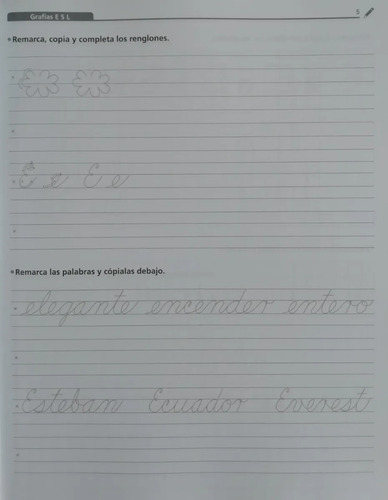 Grafías E S L
5
Remarca, copia y completa los renglones.
E e E e
Remarca las palabras y cópialas debajo.
elegante encender entero
Esteban Ecuador Everest